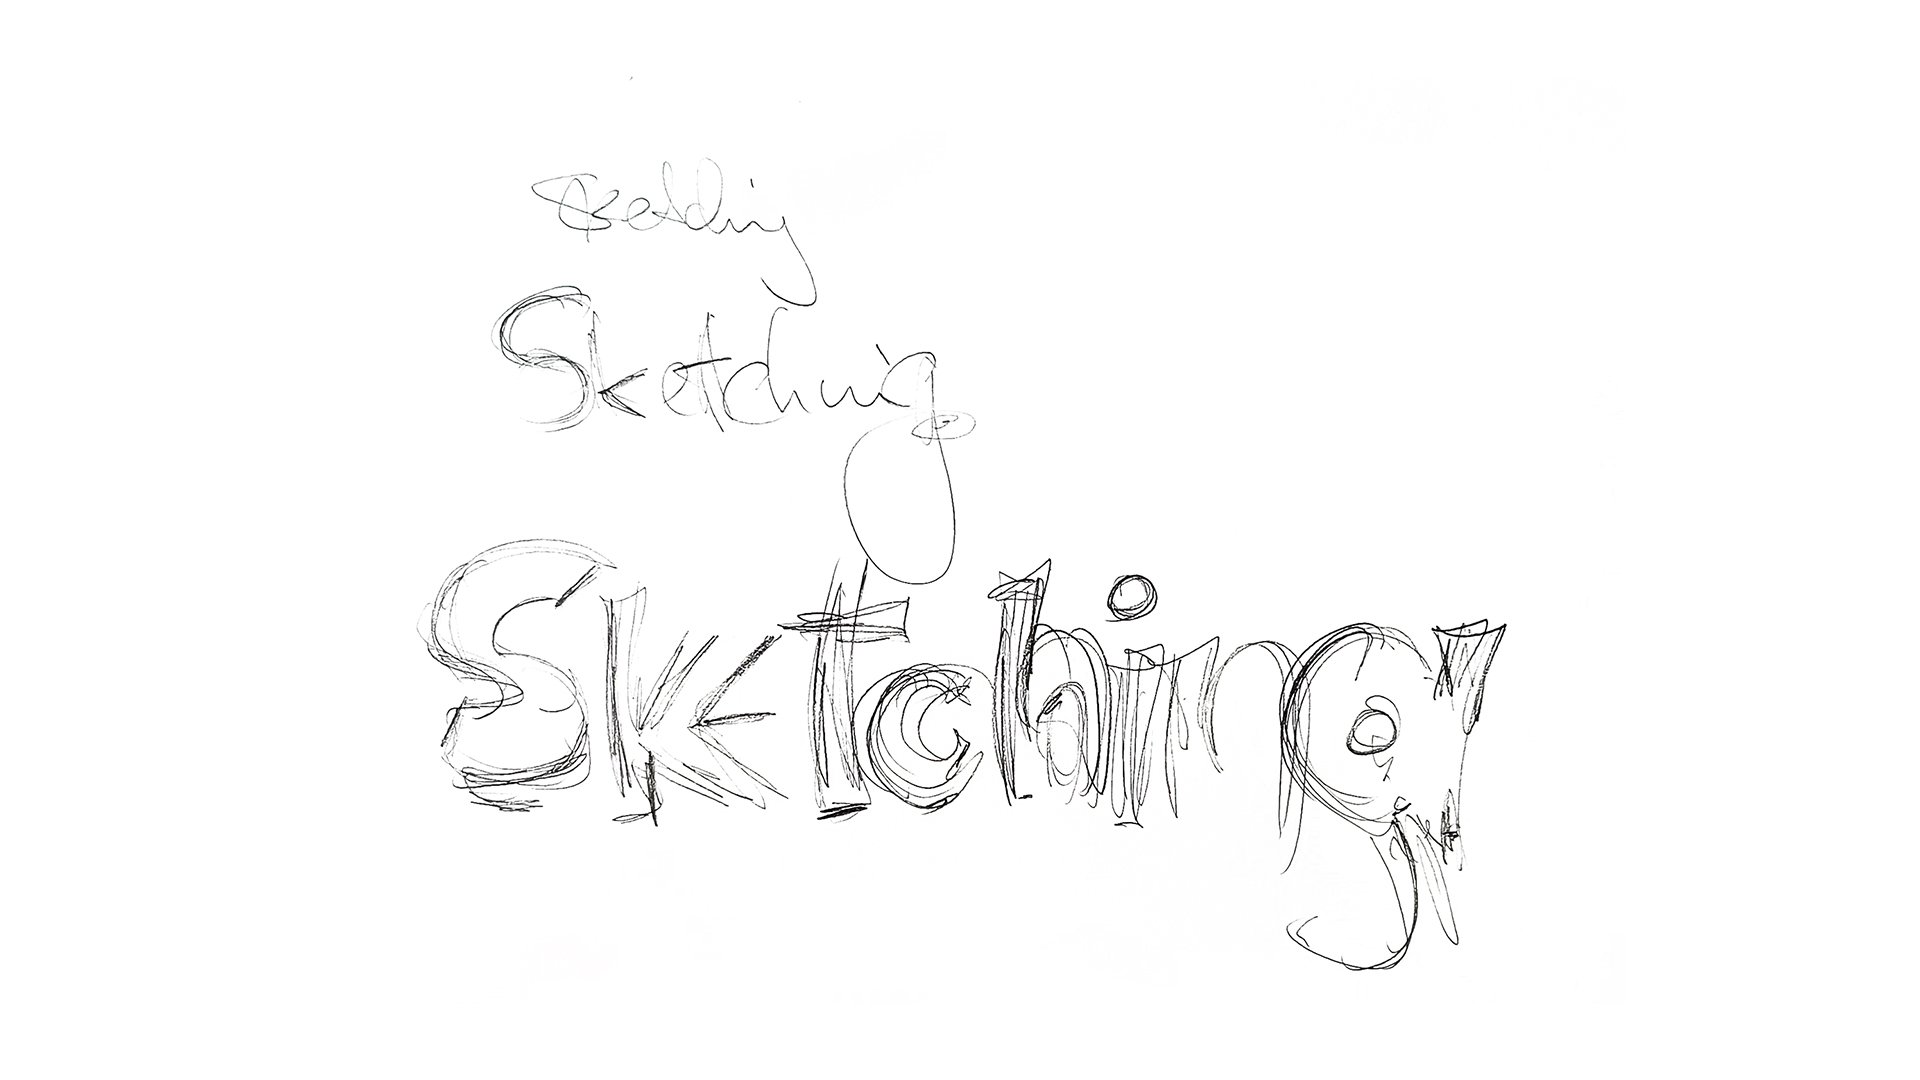 Sketching
Sketching
Sketching